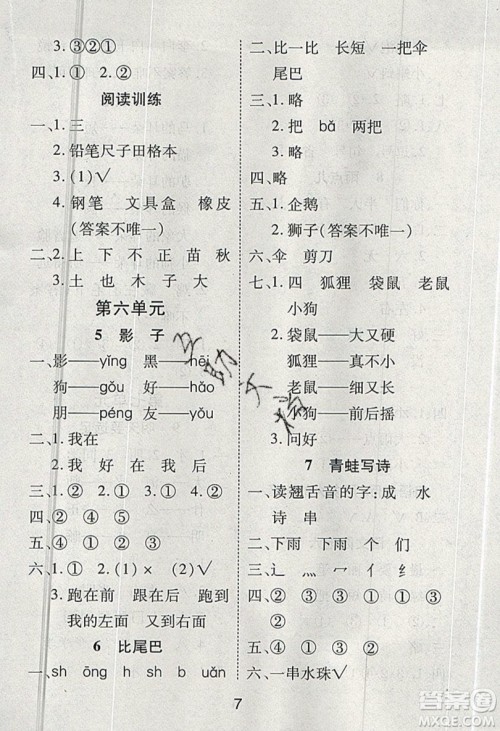 3.③②①
四、1.① 2.②
阅读训练
一、1.三
2.铅笔尺子田格本
3.(1)√
4.钢笔 文具盒 橡皮
(答案不唯一)
二、1.上 下 不 正 苗 秋
2.土 也 木 子 大
第六单元
5 影 子
一、影——yǐng 黑——hēi
狗——gǒu 好——hǎo
朋——péng 友——yǒu
二、1.我在
2.我 好 在 我 后
三、① ② ① ① ②
四、② ⑤ ① ③ ④
五、④ ② ① ③
六、1.① 2.(1)× (2)√
3.跑在前 跟在后 跑到
我的左面 又到右面
6 比尾巴
一、sh ōng h sh b uǎn
二、比一比 长短 一把伞
尾巴
三、1.略
2.把 bǎ 两把
3.略
四、略
五、1.企鹅
2.狮子(答案不唯一)
六、伞 剪刀
七、1.四 狐狸 袋鼠 老鼠
小狗
2.袋鼠——大又硬
狐狸——真不小
老鼠——细又长
小狗——前后摇
3.问好
7 青蛙写诗
一、读翘舌音的字:成 水
诗 串
二、下雨 下雨 个 们
三、辶 灬 冖 亻 纟
四、① ② ① ③ ③
五、④ ② ① ③
六、一串水珠√
7
答案圈
MXQE.COM